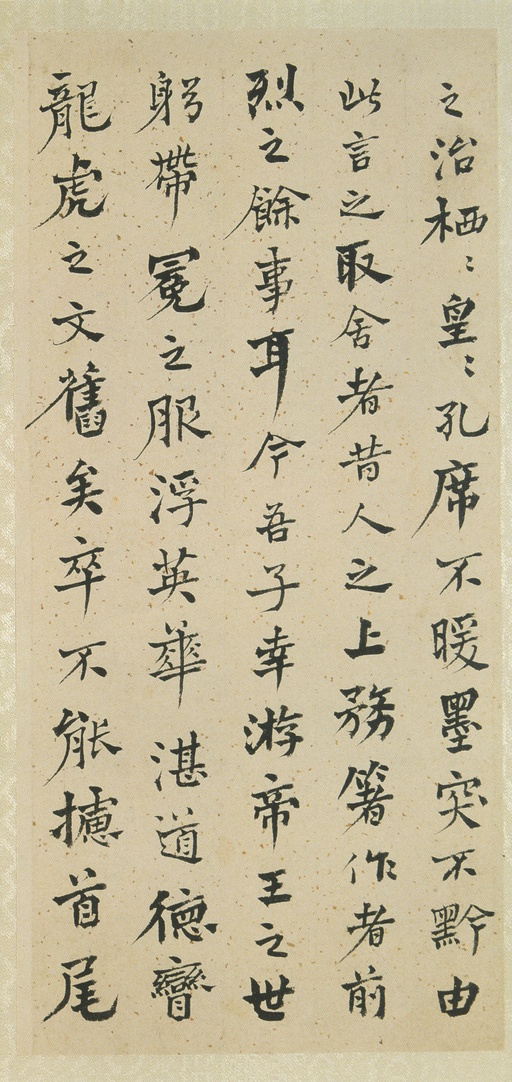 之治栖〻皇〻孔席不暖墨突不黔由
此言之取舍者昔人之上務著作者前
烈之餘事耳今吾子幸游帝王之世
躬帶冕之服浮英華湛道德矕
龍虎之文舊矣卒不能攄首尾